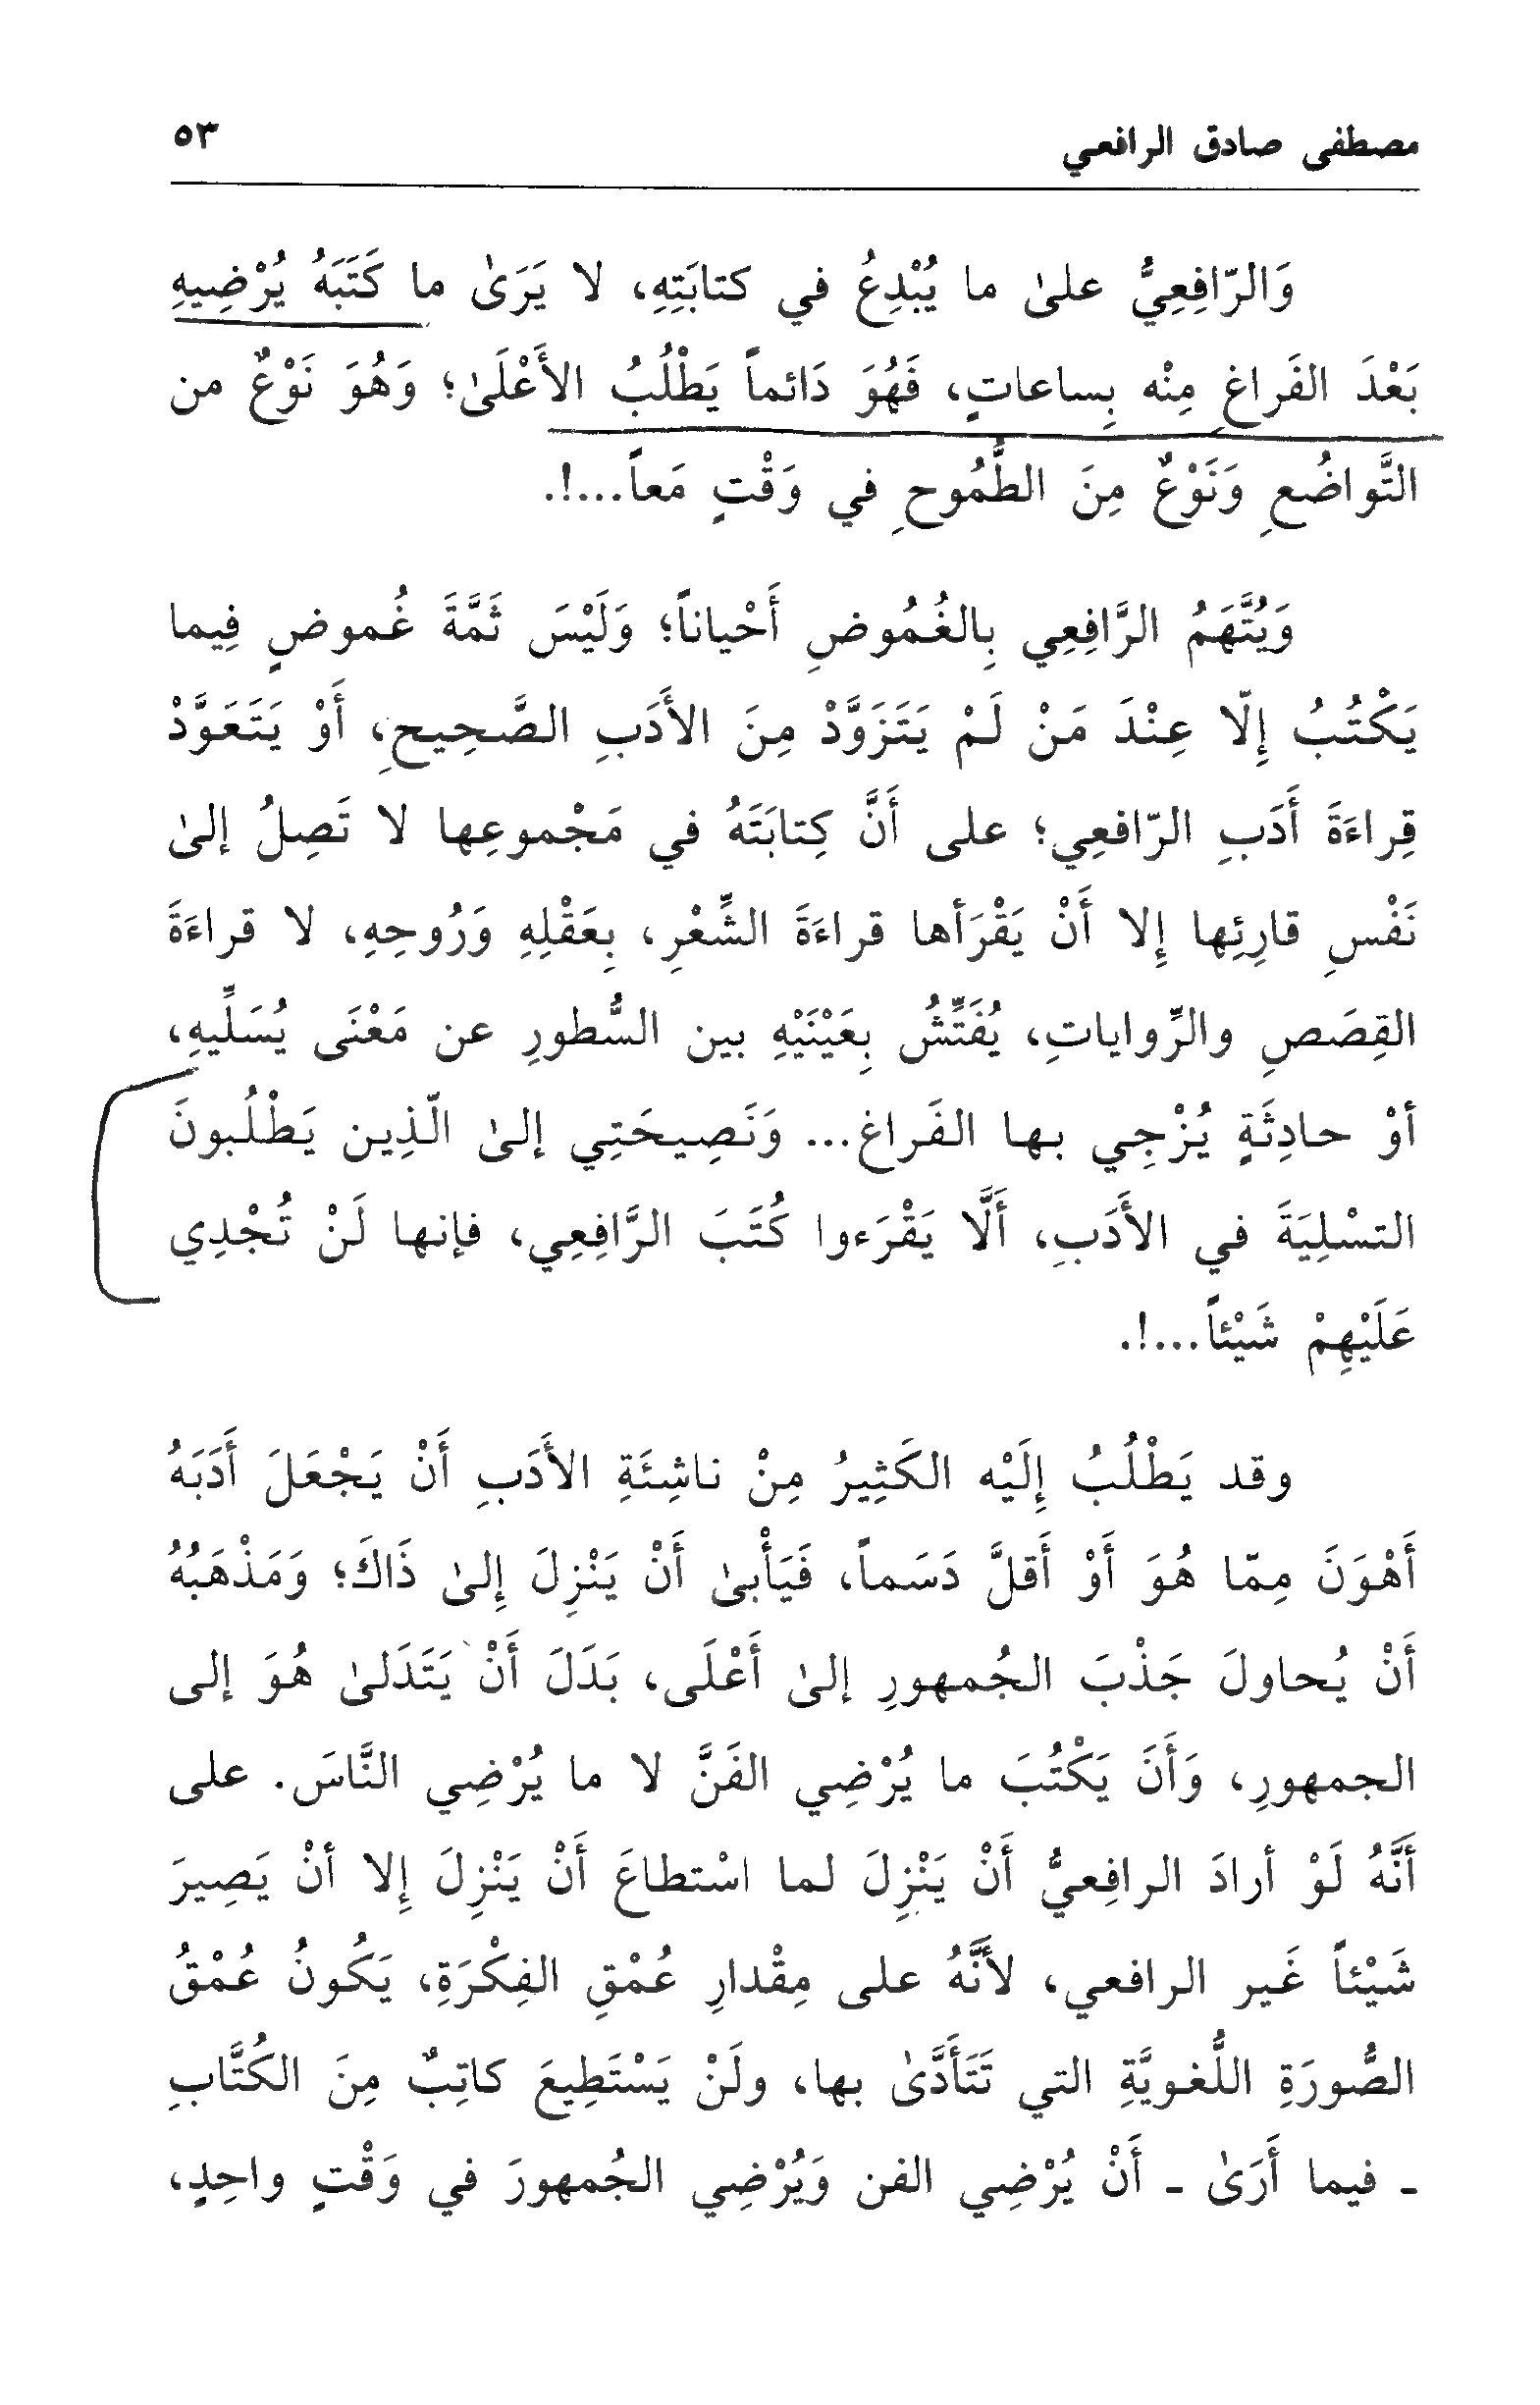 مصطفى صادق الرافعي ٥٣
وَالرّافِعِيُّ علىٰ ما يُبْدِعُ في كتابَتِهِ، لا يَرَىٰ ما كَتَبَهُ يُرْضِيهِ
بَعْدَ الفَراغِ مِنْه بِساعاتٍ، فَهُوَ دَائماً يَطْلُبُ الأَعْلَىٰ؛ وَهُوَ نَوْعٌ من
التَّواضُعِ وَنَوْعٌ مِنَ الطَّمُوحِ في وَقْتٍ مَعاً...!.
وَيُتَّهَمُ الرَّافِعِي بِالغُمُوضِ أَحْياناً؛ وَلَيْسَ ثَمَّةَ غُموضٍ فِيما
يَكْتُبُ إِلّا عِنْدَ مَنْ لَمْ يَتَزَوَّدْ مِنَ الأَدَبِ الصَّحِيحِ، أَوْ يَتَعَوَّدْ
قِراءَةَ أَدَبِ الرّافعِي؛ على أَنَّ كِتابَتَهُ في مَجْموعِها لا تَصِلُ إلىٰ
نَفْسِ قارِئِها إِلا أَنْ يَقْرَأها قراءَةَ الشِّعْرِ، بِعَقْلِهِ وَرُوحِهِ، لا قراءَةَ
القِصَصِ والرِّواياتِ، يُفَتِّشُ بِعَيْنَيْهِ بين السُّطورِ عن مَعْنَى يُسَلِّيهِ،
أوْ حادِثَةٍ يُزْجِي بها الفَراغ... وَنَصِيحَتِي إلىٰ الّذِين يَطْلُبونَ
التسْلِيَةَ في الأَدَبِ، أَلَّا يَقْرَءوا كُتَبَ الرَّافِعِي، فإنها لَنْ تُجْدِي
عَلَيْهِمْ شَيْئاً...!.
وقد يَطْلُبُ إِلَيْه الكَثِيرُ مِنْ ناشِئَةِ الأَدَبِ أَنْ يَجْعَلَ أَدَبَهُ
أَهْوَنَ مِمّا هُوَ أَوْ أَقلَّ دَسَماً، فَيَأْبىٰ أَنْ يَنْزِلَ إِلىٰ ذَاكَ؛ وَمَذْهَبُهُ
أَنْ يُحاولَ جَذْبَ الجُمهورِ إلىٰ أَعْلَى، بَدَلَ أَنْ يَتَدَلىٰ هُوَ إلى
الجمهورِ، وَأَنَ يَكْتُبَ ما يُرْضِي الفَنَّ لا ما يُرْضِي النَّاسَ. على
أَنَّهُ لَوْ أرادَ الرافِعيُّ أَنْ يَنْزِلَ لما اسْتطاعَ أَنْ يَنْزِلَ إِلا أنْ يَصِيرَ
شَيْئاً غَير الرافعي، لأَنَّهُ على مِقْدارِ عُمْقِ الفِكْرَةِ، يَكُونُ عُمْقُ
الصُّورَةِ اللُّغويَّةِ التي تَتَأَدَّىٰ بها، ولَنْ يَسْتَطِيعَ كاتِبٌ مِنَ الكُتَّابِ
ـ فيما أَرَىٰ ـ أَنْ يُرْضِي الفن وَيُرْضِي الجُمهورَ في وَقْتٍ واحِدٍ،